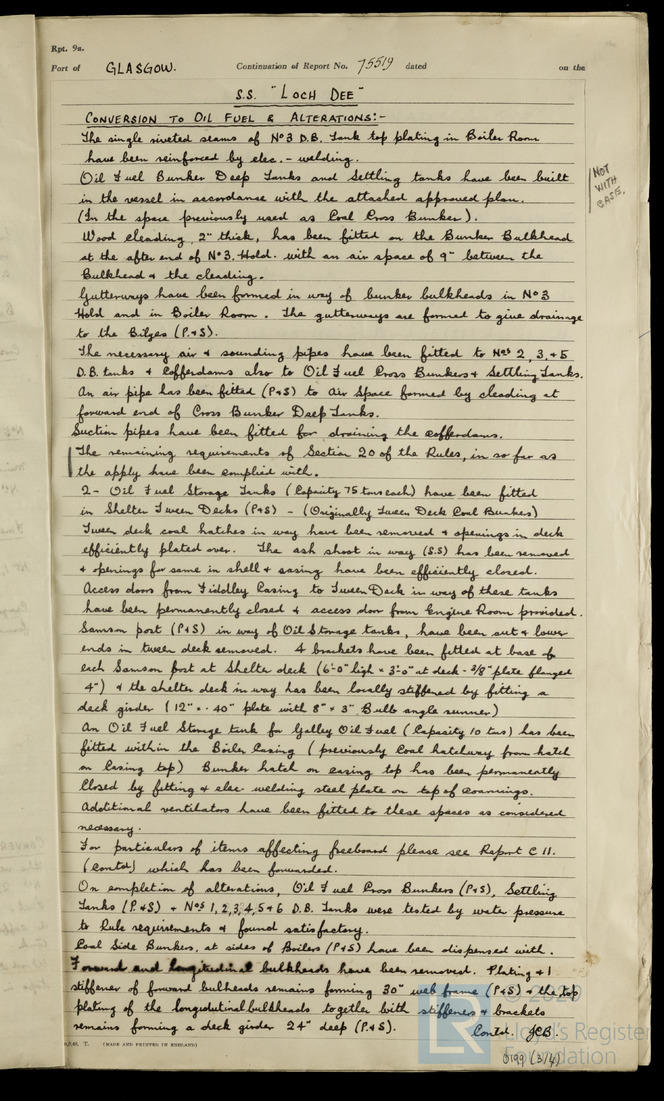 Rpt. 9a.
Port of GLASGOW. Continuation of Report No. 75519 dated on the
S.S. "LOCH DEE"
CONVERSION TO OIL FUEL & ALTERATIONS:-
The single riveted seams of No 3 D.B. Tank top plating in Boiler Room
have been reinforced by elec. - welding.
Oil Fuel Bunker Deep Tanks and Settling tanks have been built
in the vessel in accordance with the attached approved plan.
(In the space previously used as Coal Cross Bunker).
NOT
WITH
CASE.
Wood cleading, 2" thick, has been fitted on the Bunker Bulkhead
at the after end of No 3. Hold. with an air space of 9" between the
Bulkhead & the cleading.
Gutterways have been formed in way of bunker bulkheads in No 3
Hold and in Boiler Room. The gutterways are formed to give drainage
to the Bilges (P.&S).
The necessary air & sounding pipes have been fitted to Nos 2, 3, & 5
D.B. tanks & Cofferdams also to Oil Fuel Cross Bunkers & Settling Tanks.
An air pipe has been fitted (P&S) to Air Space formed by cleading at
forward end of Cross Bunker Deep Tanks.
Suction pipes have been fitted for draining the cofferdams.
The remaining requirements of Section 20 of the Rules, in so far as
the apply have been complied with.
2 - Oil Fuel Storage Tanks (Capacity 75 tons each) have been fitted
in Shelter Tween Decks (P&S) - (Originally Tween Deck Coal Bunkers)
Tween deck coal hatches in way have been removed & openings in deck
efficiently plated over. The ash shoot in way (S.S) has been removed
& openings for same in shell & casing have been efficiently closed.
Access doors from Fiddley Casing to Tween Deck in way of these tanks
have been permanently closed & access door from Engine Room provided.
Samson post (P&S) in way of Oil Storage tanks, have been cut & lower
ends in tween deck removed. 4 brackets have been fitted at base of
each Samson post at Shelter deck (6'-0" high × 3'-0" at deck - 3/8" plate flanged
4") & the shelter deck in way has been locally stiffened by fitting a
deck girder (12" × .40" plate with 8" × 3" Bulb angle runner)
An Oil Fuel Storage tank for Galley Oil Fuel (Capacity 10 tons) has been
fitted within the Boiler Casing (previously Coal hatchway from hatch
on Casing top) Bunker hatch on casing top has been permanently
Closed by fitting & elec - welding steel plate on top of coamings.
Additional ventilators have been fitted to these spaces as considered
necessary.
For particulars of items affecting freeboard please see Report C 11.
(Contd) which has been forwarded.
On completion of alterations, Oil Fuel Cross Bunkers (P&S), Settling
Tanks (P.&S) & Nos 1, 2, 3, 4, 5 & 6 D.B. Tanks were tested by water pressure
to Rule requirements & found satisfactory.
Coal Side Bunkers, at sides of Boilers (P&S) have been dispensed with.
Forward and longitudinal bulkheads have been removed. Plating & 1
stiffener of forward bulheads remains forming 30" web frame (P&S) & the top
plating of the longidutinal bulkheads together with stiffeners & brackets
remains forming a deck girder 24" deep (P.&S). Contd. JCB.
(MADE AND PRINTED IN ENGLAND)
0199 (3/4)
LR
© 2020
Lloyd's Register
Foundation